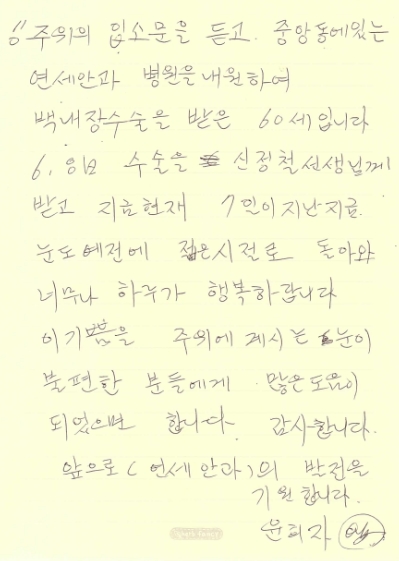 "주위의 입소문을 듣고. 중앙동에있는
연세안과 병원을내원하여
백내장수술을 받은 60세입니다
수술을 신정철선생님께
받고 지금현재 7일이지난지금.
눈도예전에 젊은시절로 돌아와
너무나 하루가 행복하답니다
이기쁨을 주위에계시는 눈이
불편한 분들에게 많은도움이
되었으면 합니다. 감사합니다.
앞으로(연세안과)의 발전을
기원합니다.
윤희자